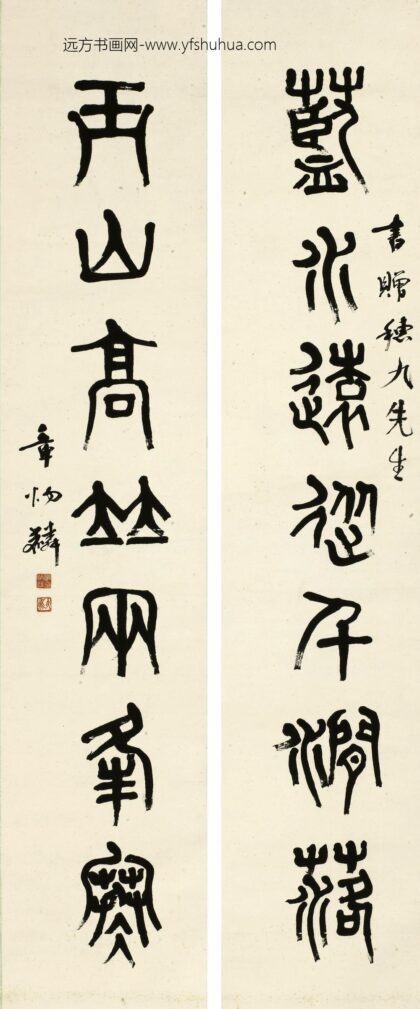 远方书画网-www.yfshuhua.com
書贈穗九先生
藍水遠從千澗落
玉山高竝兩夆寒
章炳麟